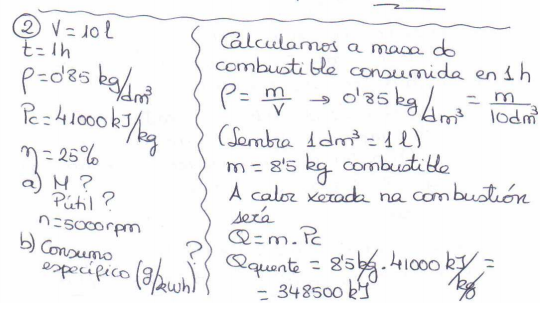 ② V = 10 l
t = 1h
ρ = 0'85 kg/dm³
Pc = 41000 kJ/kg
η = 25%
a) M ?
Pútil ?
n = 5000 rpm
b) Consumo
específico (g/kwh) ?
Calculamos a masa do
combustible consumida en 1 h
ρ = m/V → 0'85 kg/dm³ = m/10dm³
(Lembra 1dm³ = 1 l)
m = 8'5 kg combustible
A calor xerada na combustión
será
Q = m . Pc
Qquente = 8'5 kg . 41000 kJ/kg =
= 348500 kJ